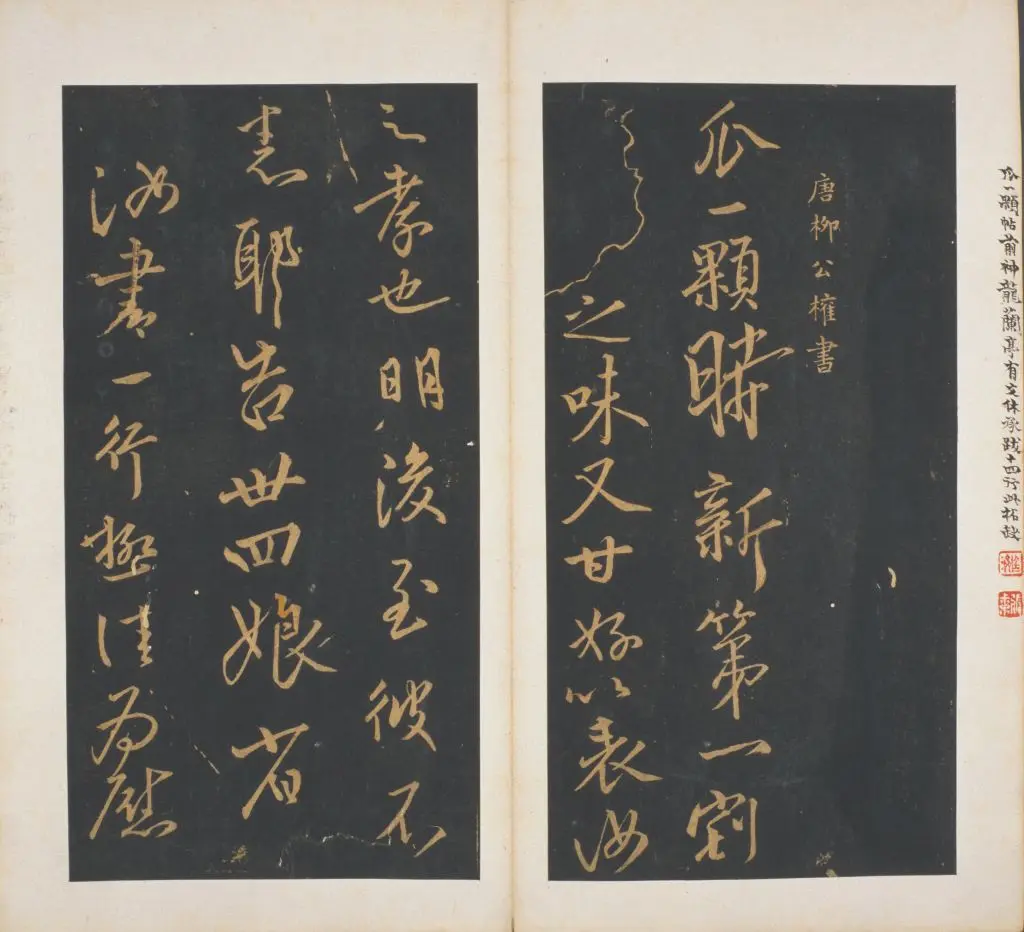 瓜一顆帖前神龍蘭亭有文休承跋十四行此拓缺
唐柳公權書
瓜一顆時新第一割
之味又甘好以表汝
之孝也明後至彼不
悉耶告丗四娘省
汝書一行極佳為慰